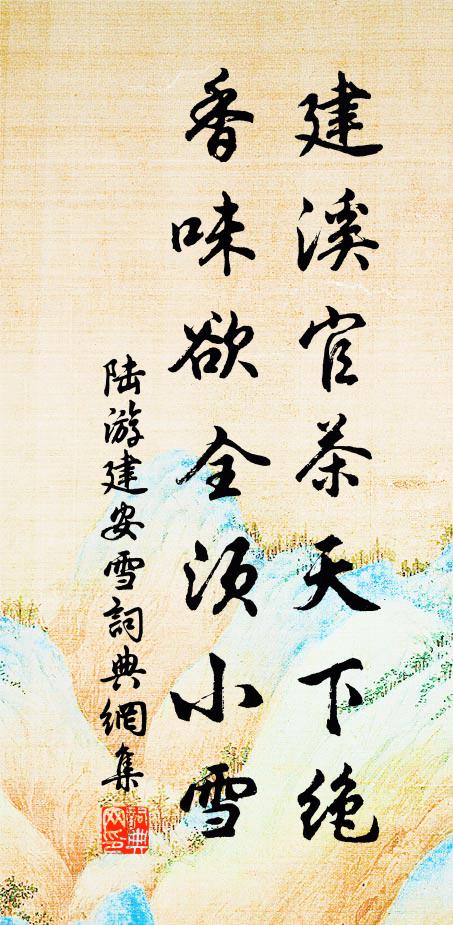 建溪官茶天下绝
香味欲全须小雪
陆游建安雪詞典網集
詞典